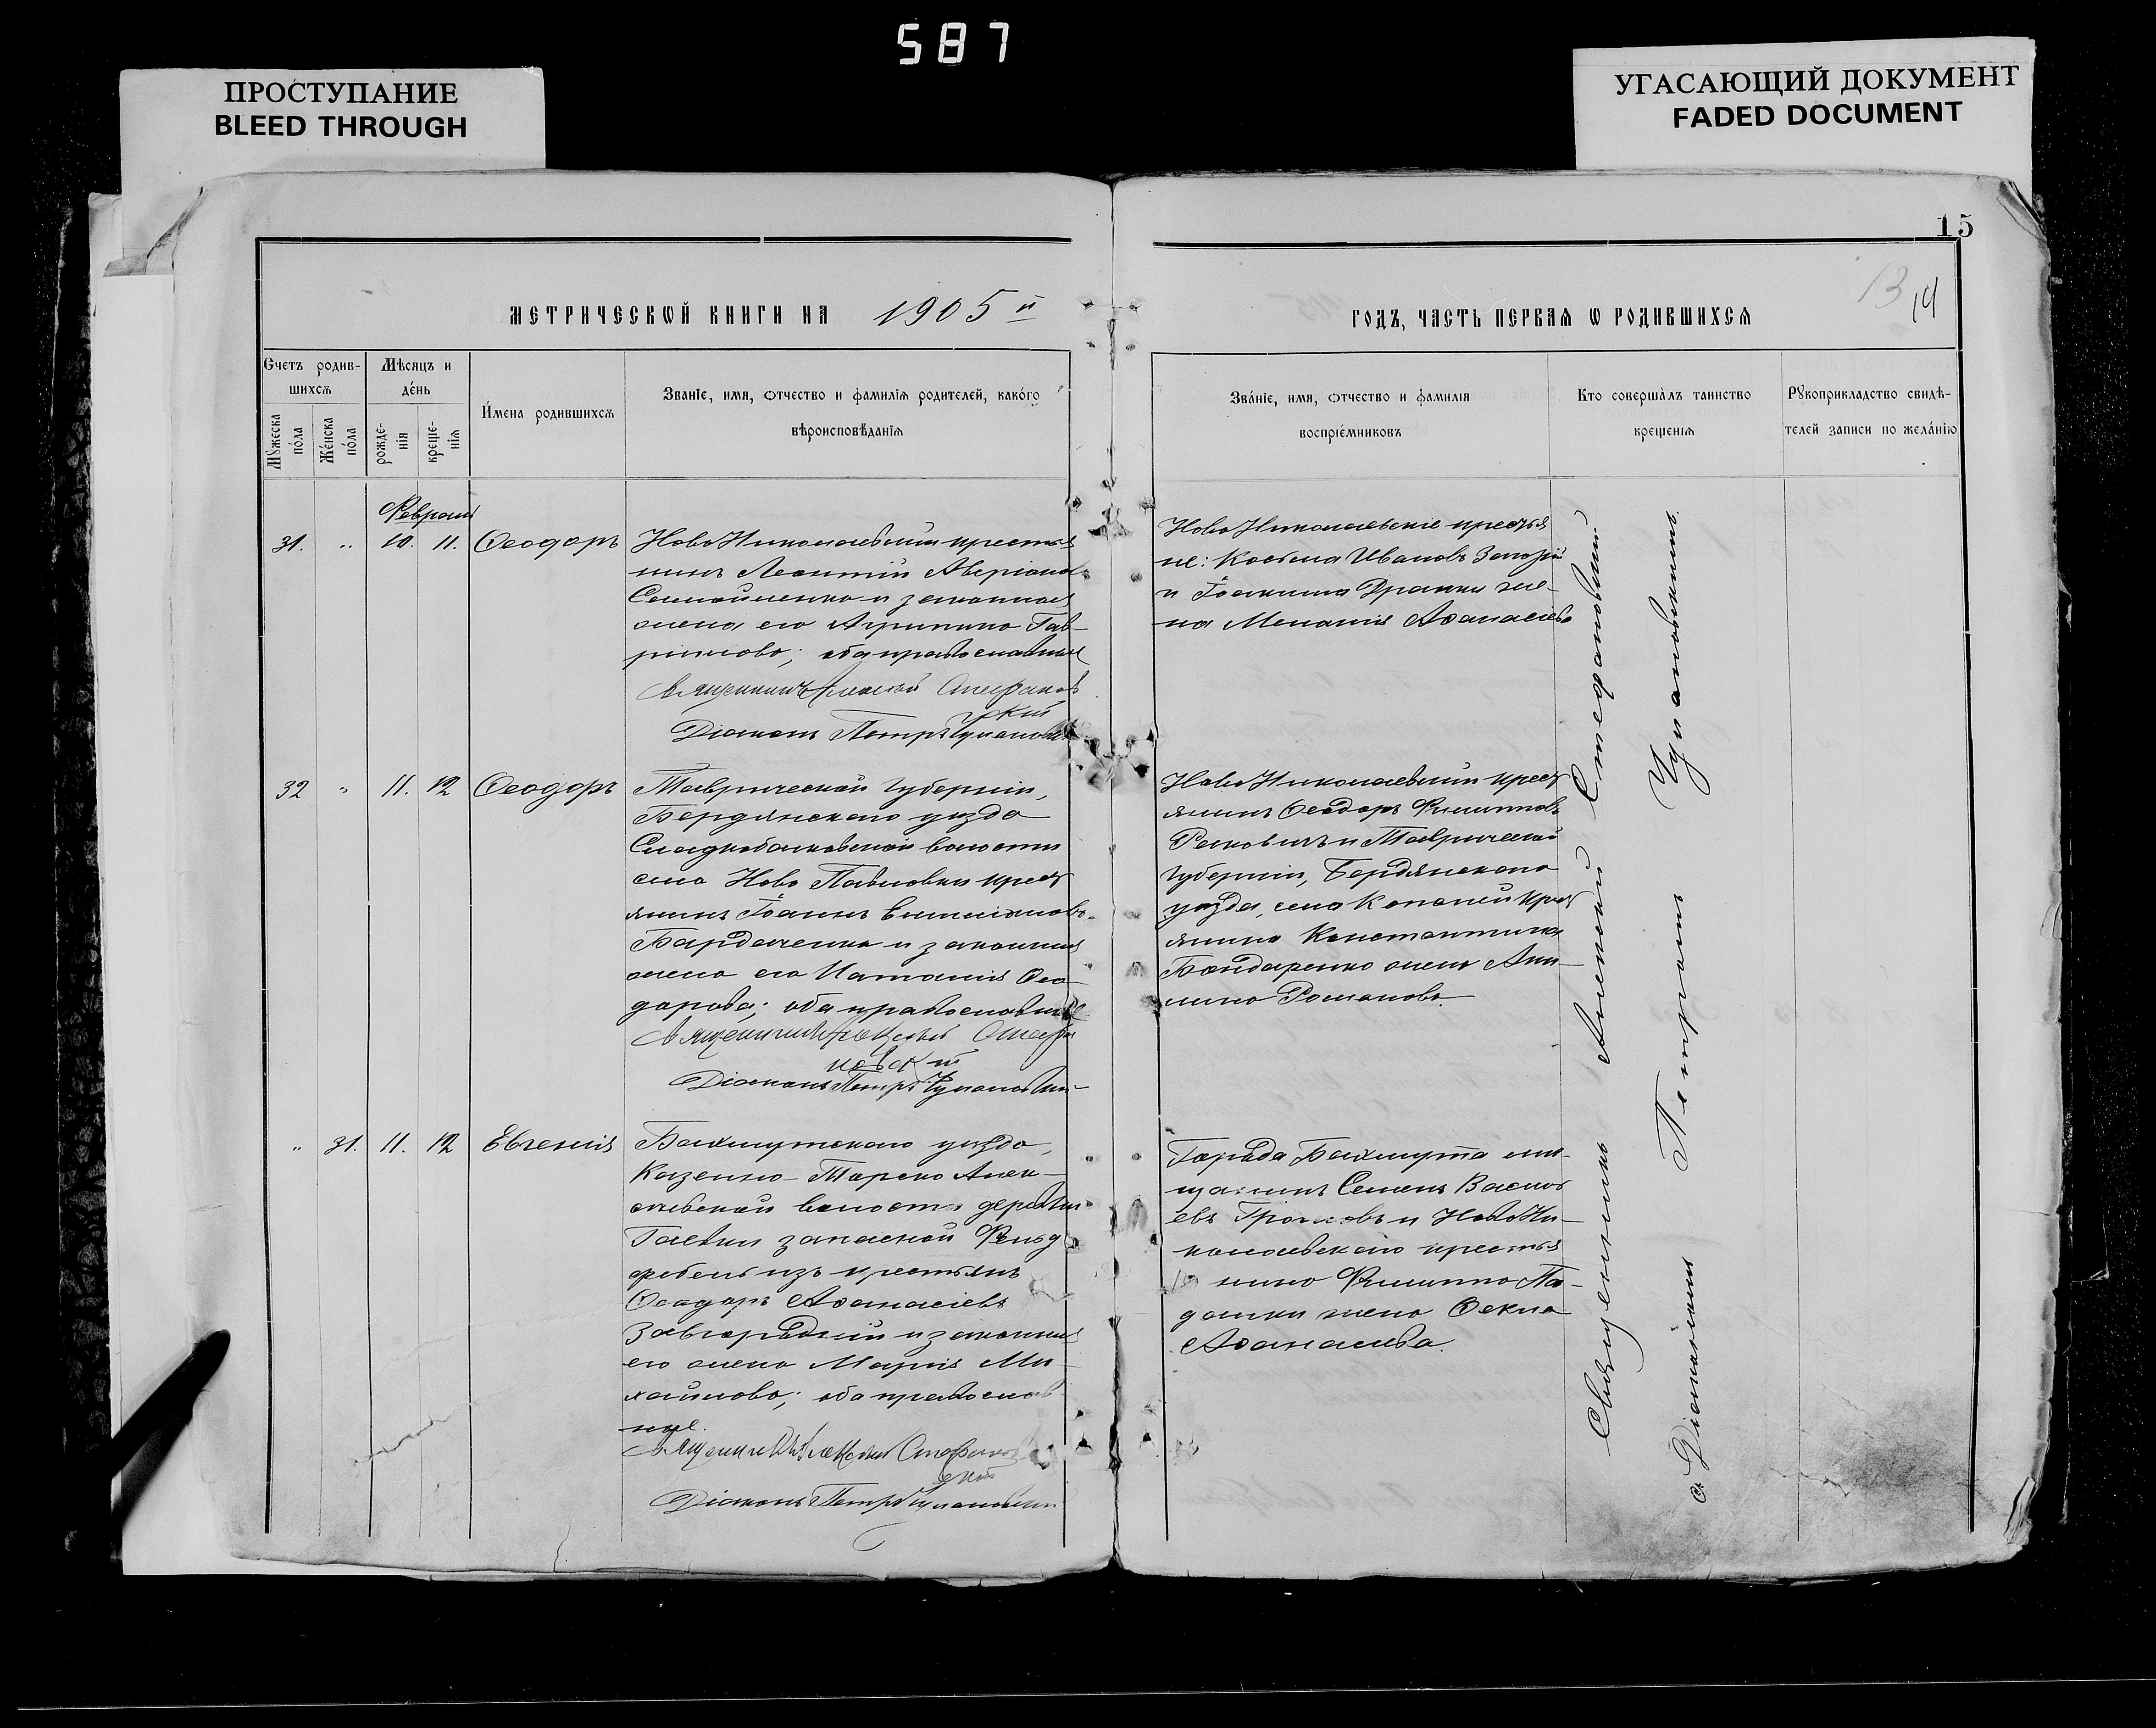 587
ПРОСТУПАНИЕ
BLEED THROUGH
УГАСАЮЩИЙ ДОКУМЕНТ
FADED DOCUMENT
15
13 14
МЕТРИЧЕСКѠЙ КНИГИ НА 1905 й
ГОДЪ, ЧАСТЬ ПЕРВАѦ Ѡ РОДИВШИХСѦ
Счетъ родив-
шихсѧ
Мꙋжеска
по́ла
Же́нска
по́ла
Мѣсяцъ и
де́нь
рожде-
нїѧ
креще-
нїѧ
И́мена родившихсѧ
Званїе, имя, ѻтчество и фамилїѧ родителей, како́гѡ
вѣроисповѣданїѧ
Зва́нїе, имя, ѻтчество и фамилїѧ
воспрїе́мниковъ
Кто соверша̀лъ таинство
крещенїѧ
Рꙋкоприкладство свидѣ-
телей записи по жела́нїю
Февраль
31. „ 10. 11. Ѳеодоръ
НовоНиколаевскій крестья
нинъ Леонтій Аверіановъ
Самойленко и законная
жена его Агрипина Гав-
риилова; оба православные
Священникъ Алексій Стефанов
скій
Діаконъ Петръ
НовоНиколаевскіе крестья
не: Косьма Ивановъ
и Іоакима Драпки же-
на Меланія Аѳанасіева
32 „ 11. 12 Ѳеодоръ
Таврической губерніи,
Бердянскаго уезда
Сладкобалковской волости
села Ново Павловки крест
янинъ Іоаннъ Емиліановъ
Бардаченко и законная
жена его Наталія Ѳео-
дорова; оба православные
Священникъ Алексій Стефа
новскій
Діаконъ Петръ
НовоНиколаевскій крест
янинъ Ѳеодоръ Филипповъ
и Таврической
губерніи, Бердянскаго
уезда, села Копаней крест
янина Константина
Бондаренко жена Аки-
лина Романова
„ 31. 11. 12 Евгенія
Бахмутскаго уезда,
Казенно-Торско Алек-
сеевской волости деревни
запасной Фельд
фебель изъ крестьянъ
Ѳеодоръ Аѳанасіевъ
Завгородній и законная
его жена Марія Ми-
хайлова; оба православ
ные.
Священникъ Алексій Стефанов
скій
Діаконъ Петръ
Города Бахмута ме-
щанинъ Семенъ Василь
евъ и НовоНи-
колаевскаго крестья
нина Филиппа
жена Ѳекла
Аѳанасиева.
Священникъ Алексій Стефановскій
съ Діакономъ Петромъ